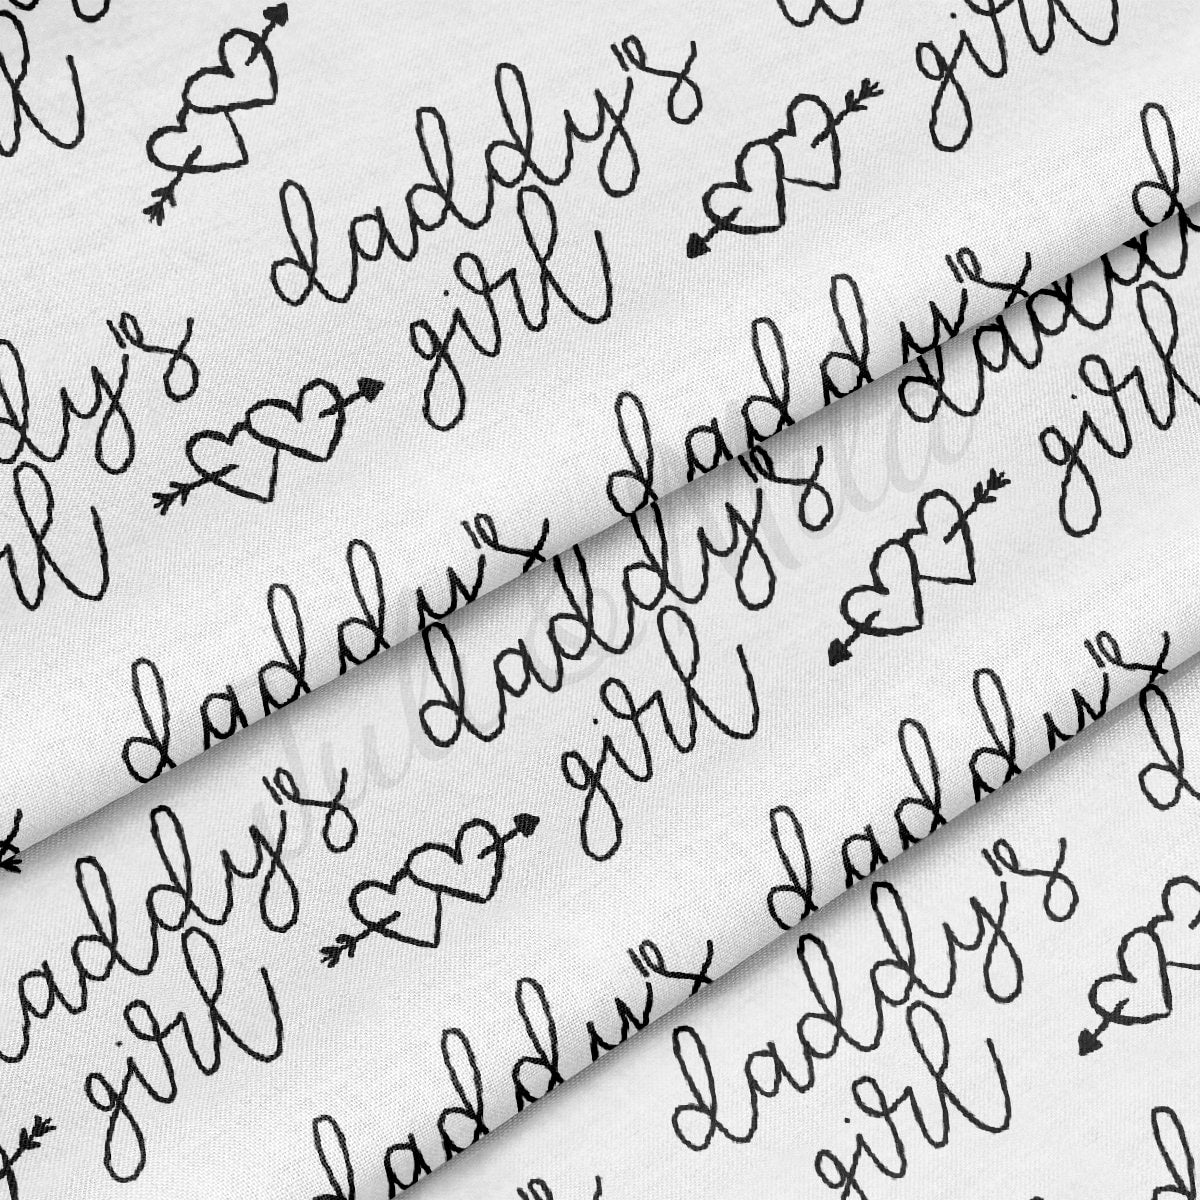 daddy's
girl
girl
daddy's
girl
daddy's
girl
daddy's
daddy's
girl
daddy's
girl
daddy's
daddy's
daddy's
girl